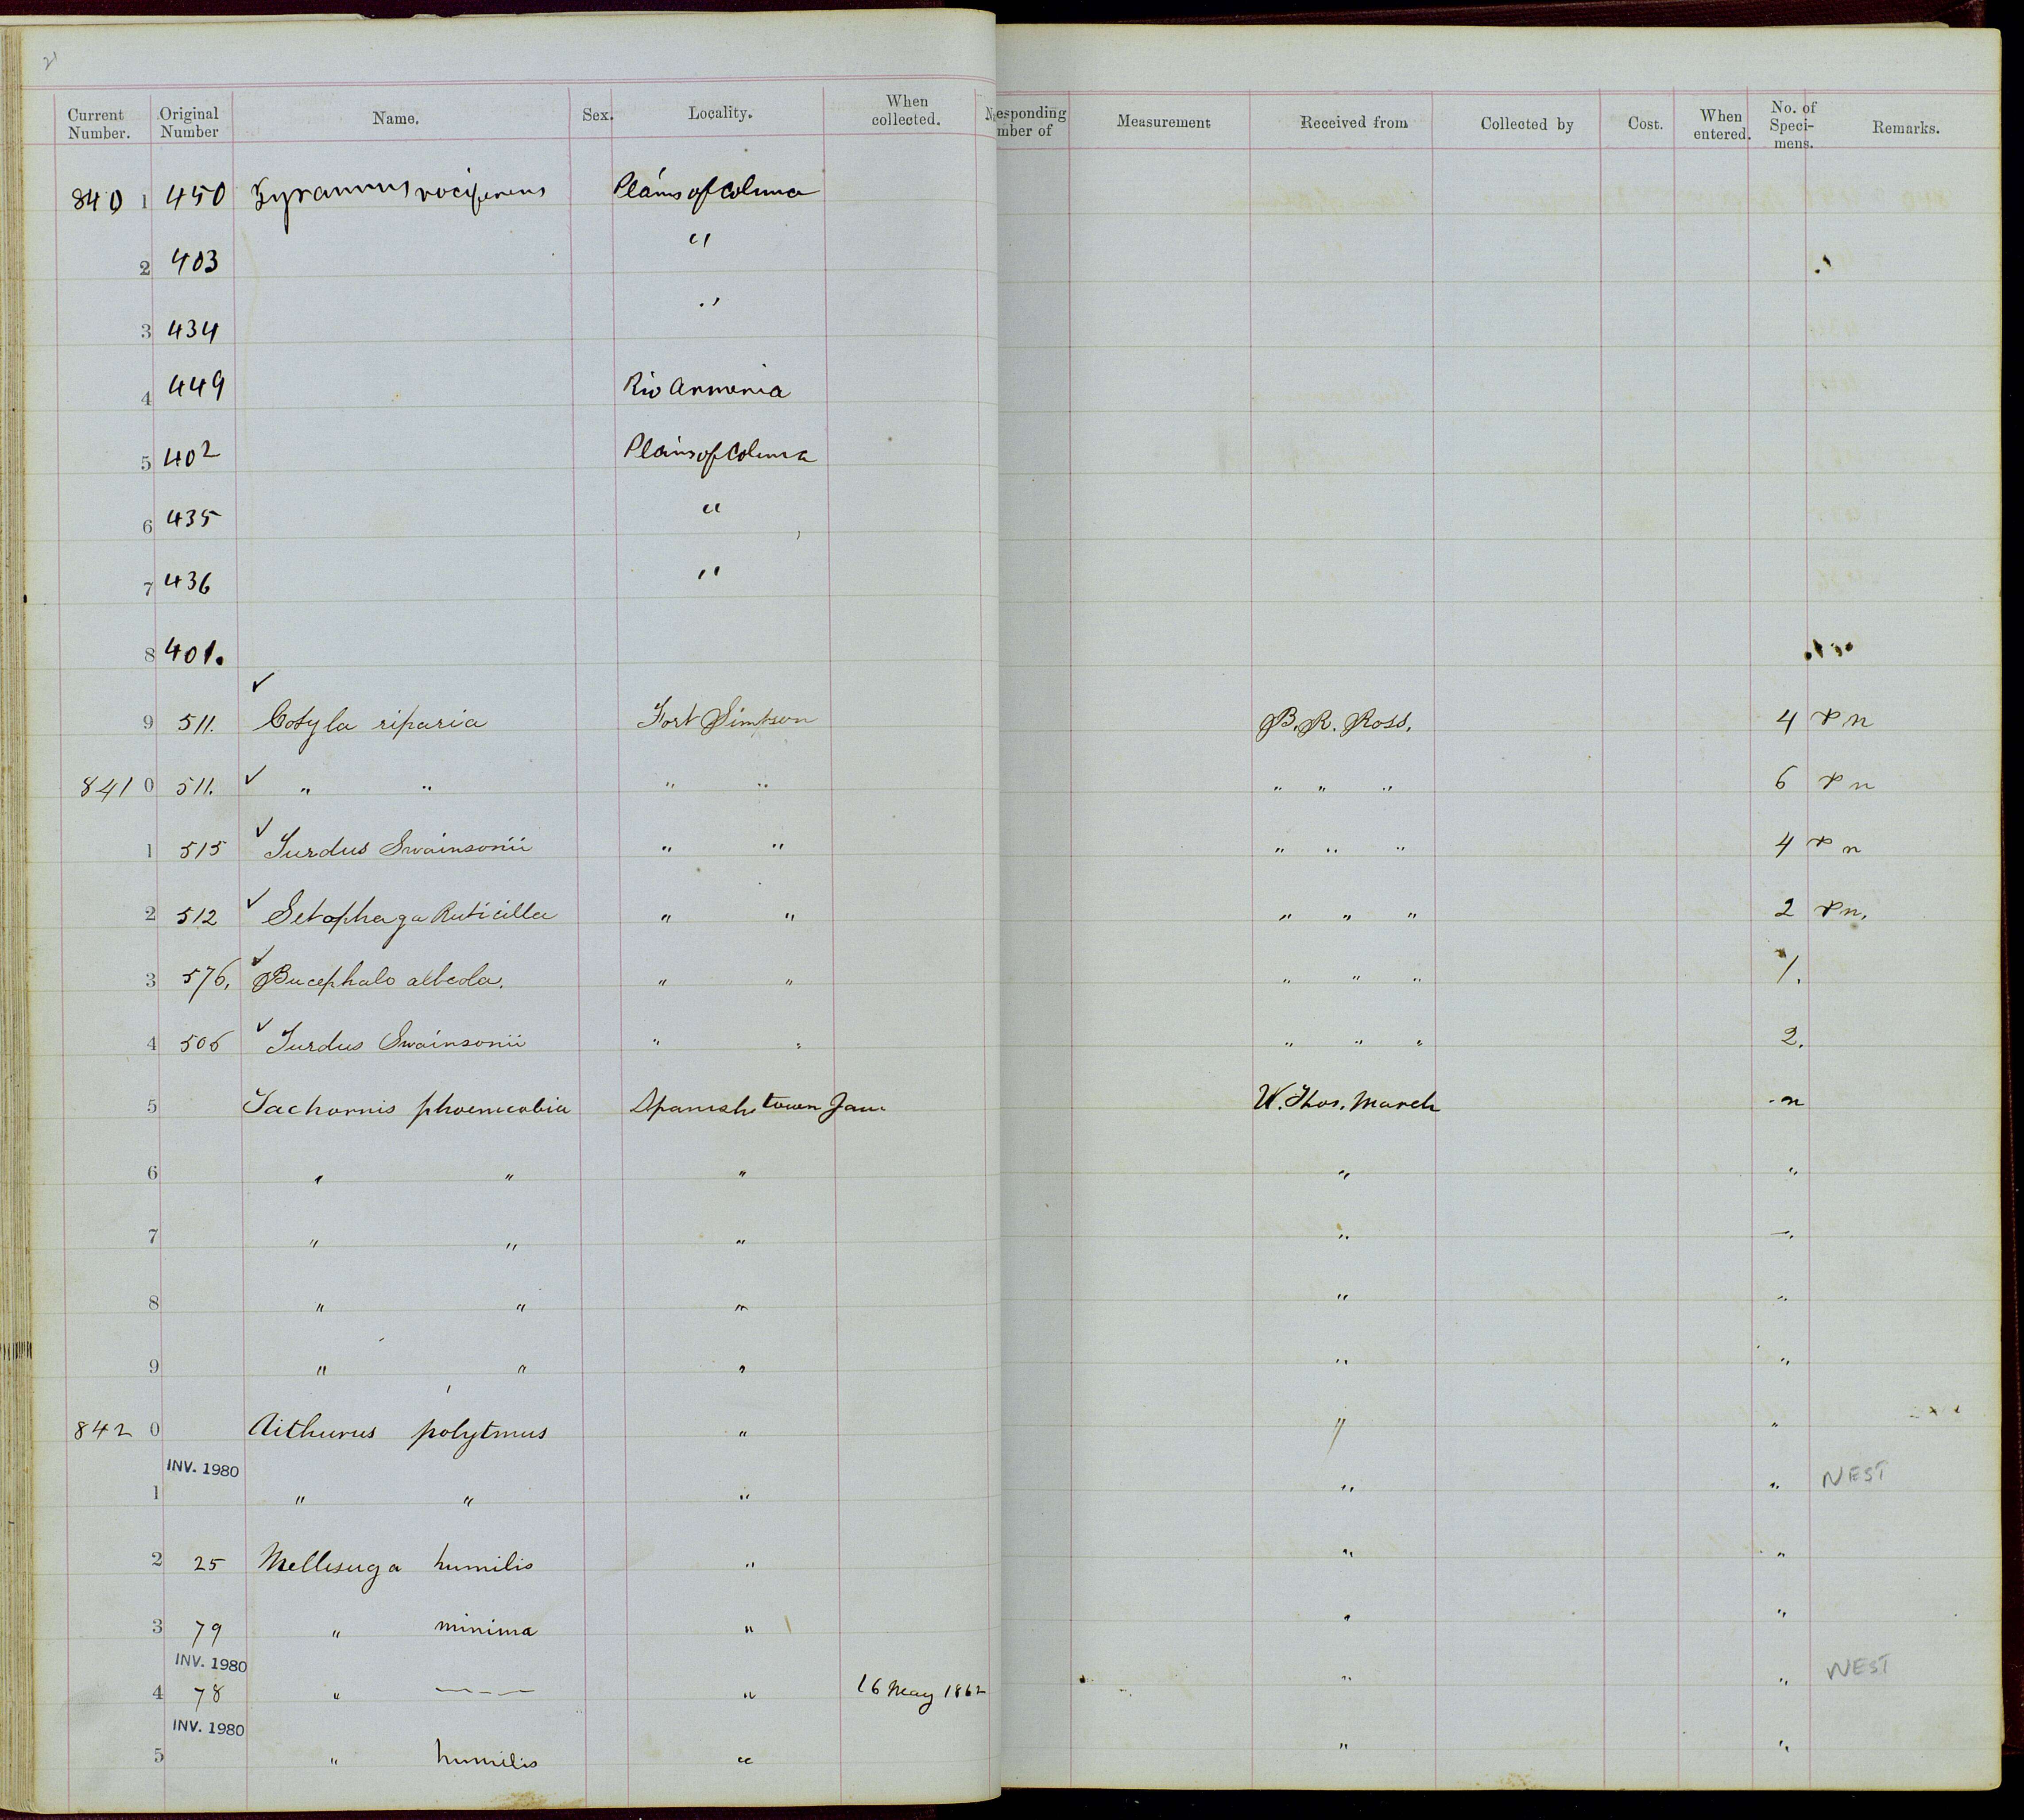 21
Current Number. Original Number Name. Sex. Locality. When collected. esponding mber of Measurement Received from Collected by Cost. When entered. No. of Speci-mens. Remarks.
840 1 450 Tyrannus vociferens Plains of Colima
2 403 "
3 434 "
4 449 Rio Armeria
5 402 Plains of Colima
6 435 "
7 436 "
8 401.
9 511. ✓ Cotyla riparia Fort Simpson B. R. Ross. 4 & n
841 0 511. ✓ " " " " " " " 6 & n
1 515 ✓ Turdus Swainsonii " " " " " 4 & n
2 512 ✓ Setophaga Ruticilla " " " " " 2 & n.
3 576. ✓ Bucephalo albeola. " " " " " 1.
4 506 ✓ Turdus Swainsonii " " " " " 2.
5 Tachornis phoenicobia Spanish town Jam W. Thos. March n
6 " " " " "
7 " " " " "
8 " " " " "
9 " " " " "
842 0 Aithurus polytmus " " "
INV. 1980
1 " " " " " NEST
2 25 Mellisuga humilis " " "
3 79 " minima " " "
INV. 1980
4 78 " ---- " 16 May 1862 " " NEST
INV. 1980
5 " humilis " " "